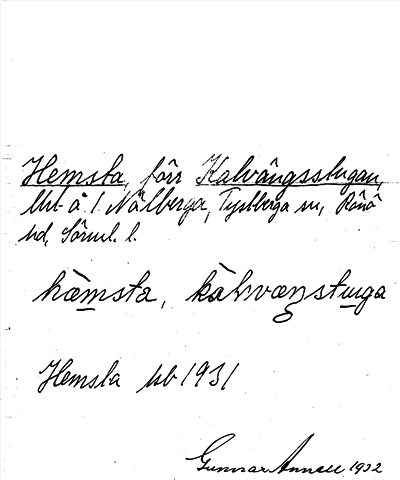 Hemsta, förr Kalvängsstugan,
lht å 1 Nälberga, Tystberga sn, Rönö
hd, Sörml. l.
hæmsta, kàlvæŋstuga
Hemsta hb 1931
Gunnar Annell 1932